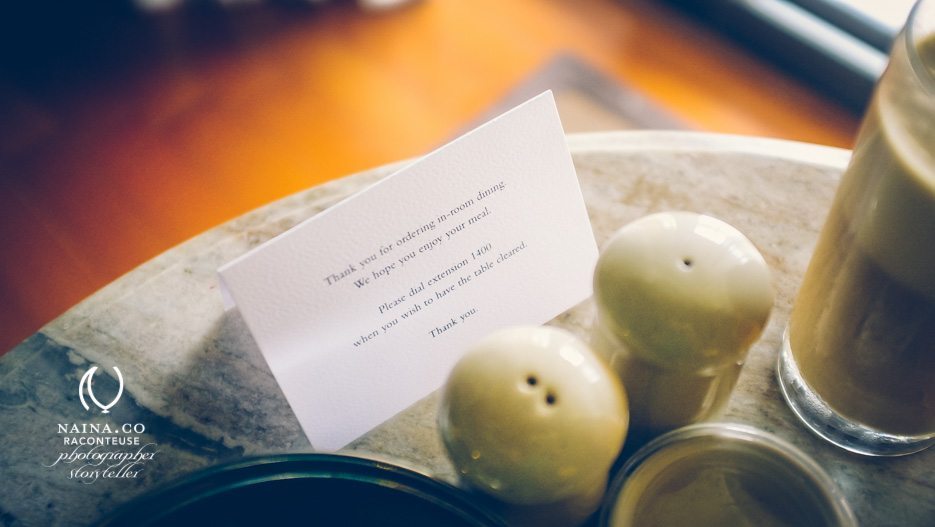 Thank you for ordering in-room dining.
We hope you enjoy your meal.
Please dial extension 1400
when you wish to have the table cleared.
Thank you.
NAINA.CO
RACONTEUSE
photographer
storyteller